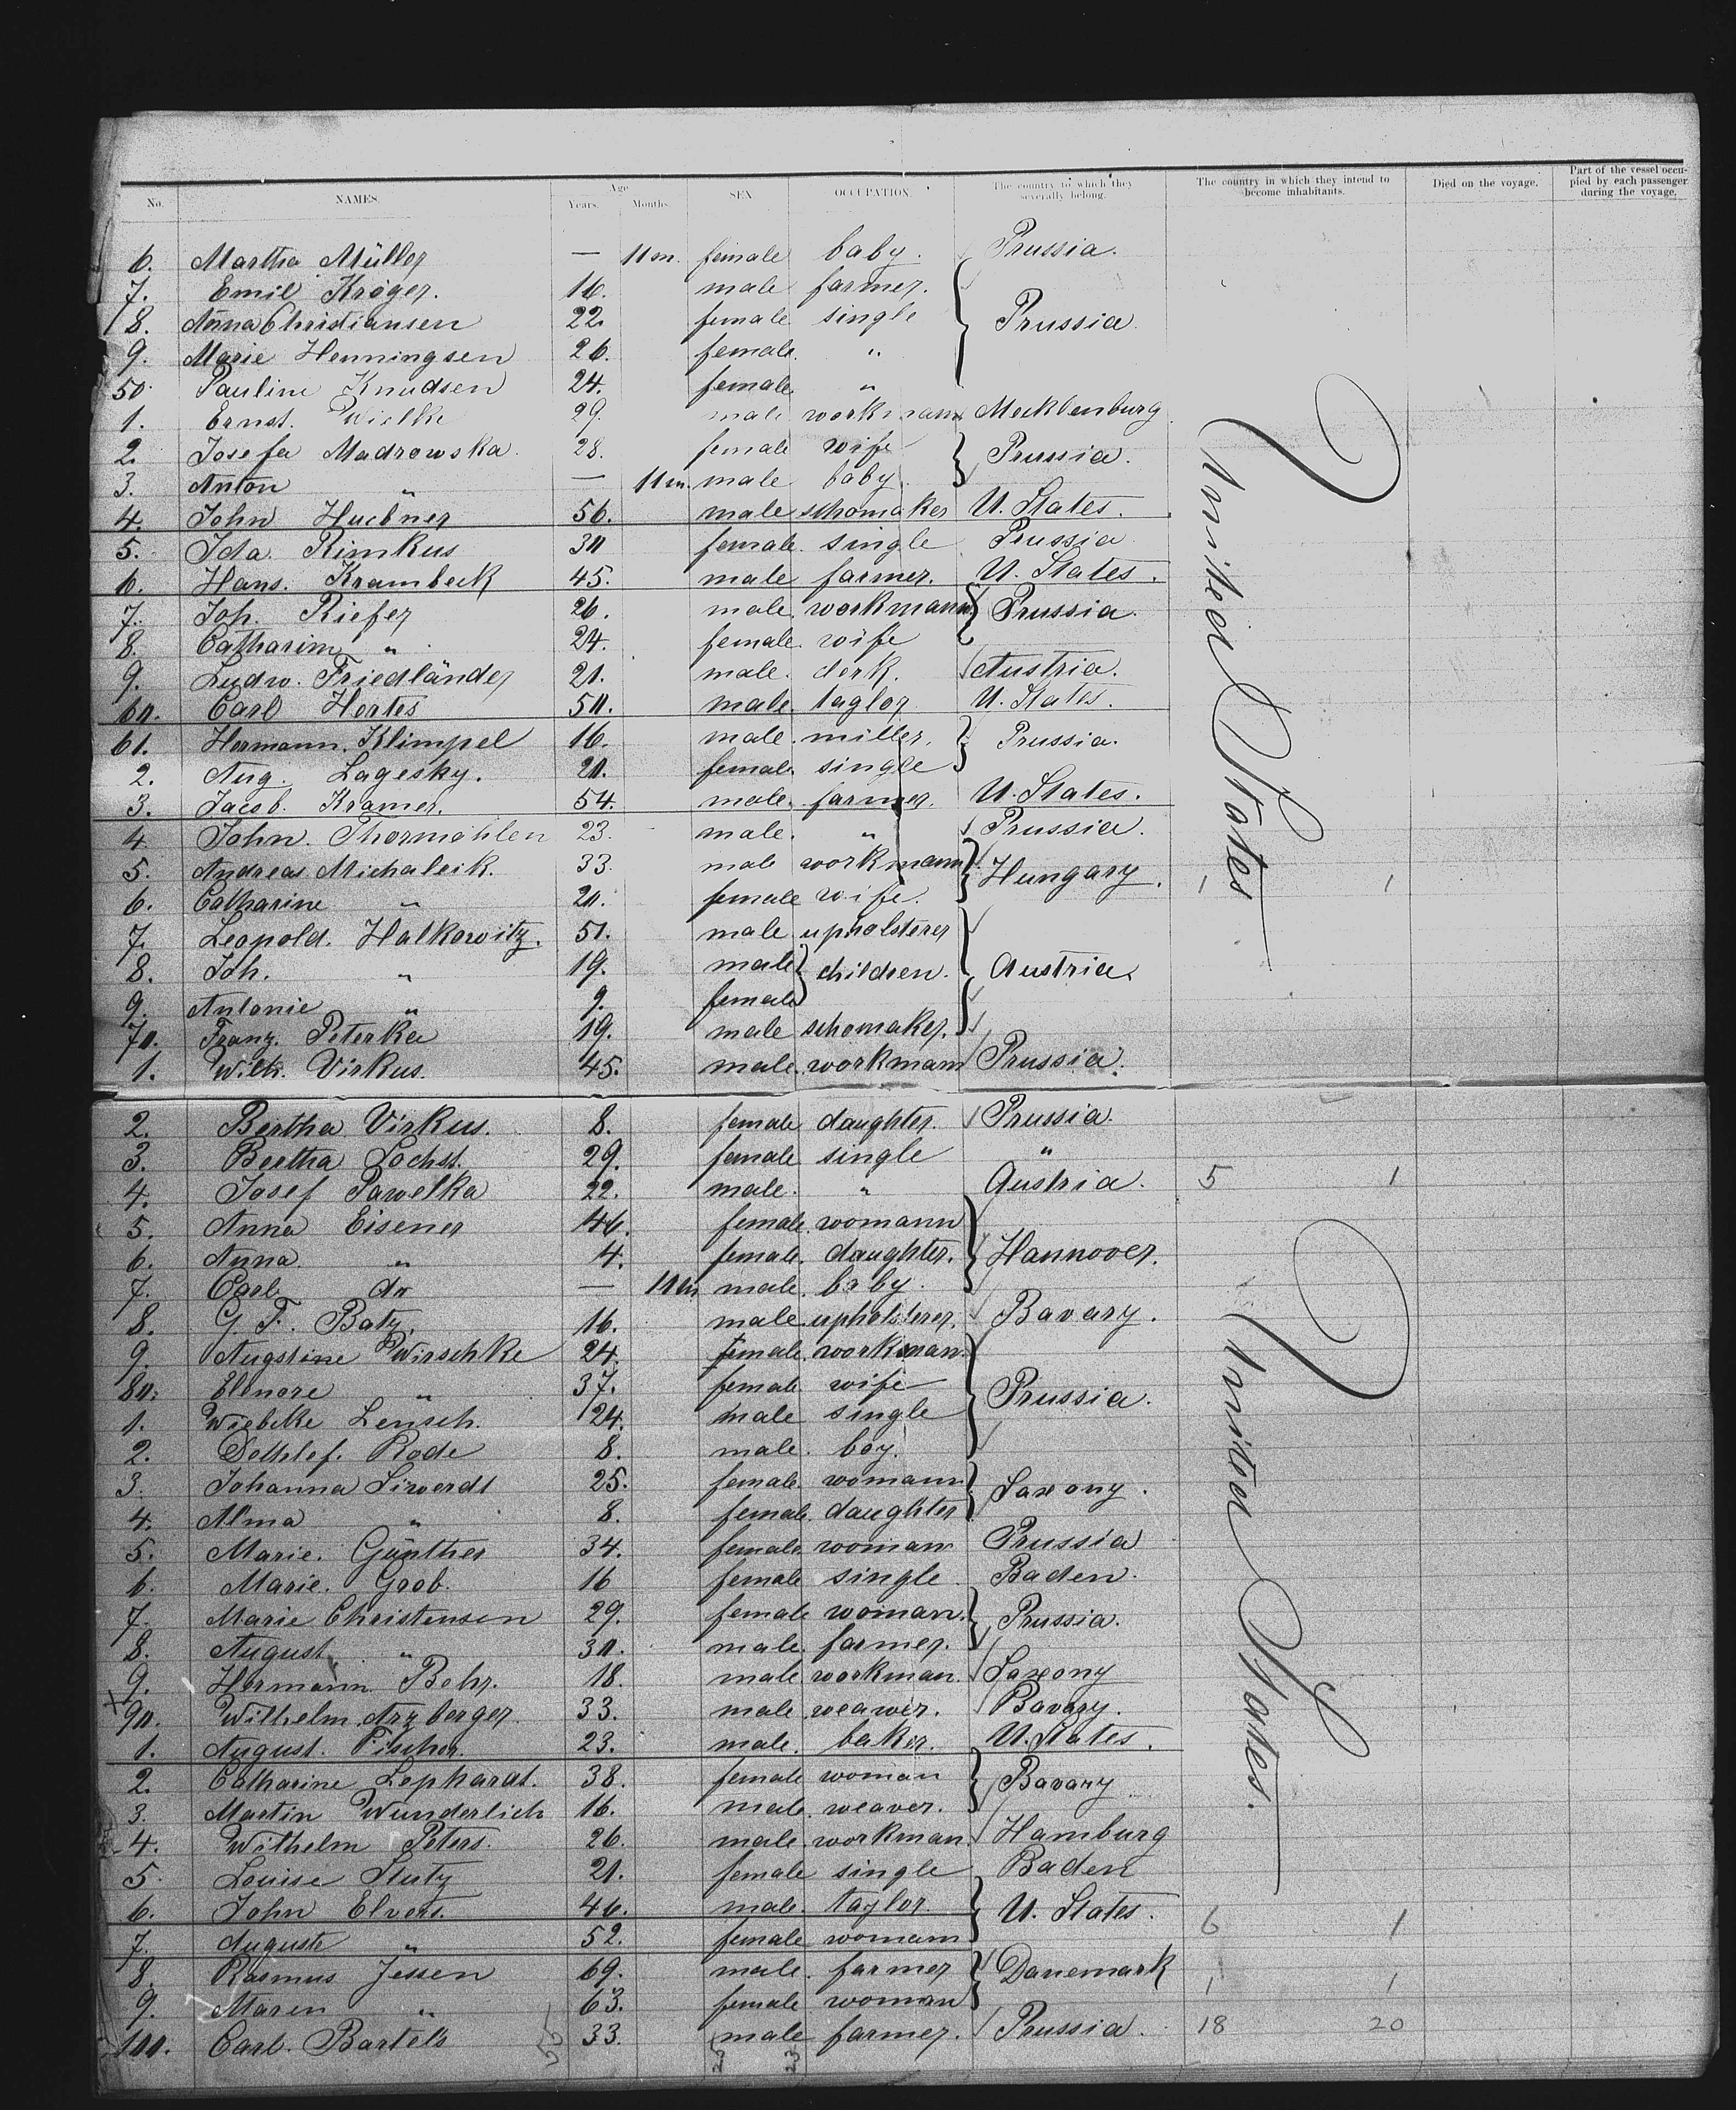 No. NAMES. Age Years. Months SEX. OCCUPATION. The country to which they severally belong. The country in which they intend to become inhabitants. Died on the voyage. Part of the vessel occupied by each passenger during the voyage.
6. Martha Müller — 11 m. female baby. Prussia.
7. Emil Kröger. 16. male farmer.
8. Anna Christiansen 22. female single Prussia.
9. Marie Henningsen 26. female. "
50. Pauline Knudsen 24. female "
1. Ernst. Wielke 29. male workmann Mecklenburg
2. Josefa Madrowska. 28. female wife Prussia.
3. Anton " — 11 m. male baby.
4. John Huebner 56. male schomaker U. States.
5. Ida. Rimkus 30 female. single Prussia
6. Hans. Krambeck 45. male farmer. U. States.
7. Joh. Kiefer 26. male workmann Prussia.
8. Catharine " 24. female. wife
9. Ludw. Friedländer 21. male. clerk. Austria.
60. Carl Hertes 50. male taylor U. States.
61. Hermann. Klimpel 16. male. miller. Prussia.
2. Aug. Lagesky. 20. female. single
3. Jacob. Kramer. 54. male. farmer. U. States.
4. John. Thormählen 23. male. " Prussia.
5. Andreas Michaleik. 33. male workmann Hungary. 1 1
6. Catharine " 20. female wife.
7. Leopold. Halkowitz. 51. male upholsterer
8. Joh. " 19. male children. Austria.
9. Antonie " 9. female
70. Franz. Peterka 19. male schomaker.
1. Wilh. Virkus. 45. male. workmann Prussia.
United States
2. Bertha Virkus. 8. female daughter. Prussia.
3. Bertha Lochst. 29. female single "
4. Josef Pawelka 22. male. " Austria. 5 1
5. Anna Eisener 46. female. womann
6. Anna " 4. female. daughter. Hannover.
7. Carl do — 11 m. male. baby.
8. G. F. Batz. 16. male upholsterer. Bavary.
9. Augstine Wirschke 24. female. workman.
80. Elenore " 37. female. wife Prussia.
1. Wiebcke Lensch. 24. male single
2. Dethlef. Rode 8. male. boy.
3. Johanna Siwerdt 25. female. womann Saxony.
4. Alma " 8. female. daughter
5. Marie. Günther 34. female. womann Prussia
6. Marie. Grob. 16 female single Baden.
7. Marie Christensen 29. female woman. Prussia.
8. August " 30. male. farmer.
9. Hermann Behr. 18. male. workman. Saxony
90. Wilhelm Arzberger 33. male weawer. Bavary.
1. August. Fischer. 23. male. baker. U. States.
2. Catharine Lephardt. 38. female woman Bavary
3. Martin Wunderlich 16. male. weaver.
4. Wilhelm Peters. 26. male. workman. Hamburg
5. Louise Stutz 21. female single Baden
6. John Elvers. 46. male. taylor. U. States. 6 1
7. Auguste " 52. female womann
8. Rasmus Jessen 69. male. farmer Danemark 1 1
9. Maren " 63. female woman
100. Carl. Bartels 33. male farmer. Prussia. 18 20
United States.
55 25 23